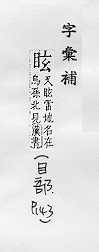 字彙補
眩 天眩雷埈名在
烏孫北見廣輿
（目部，P.143）